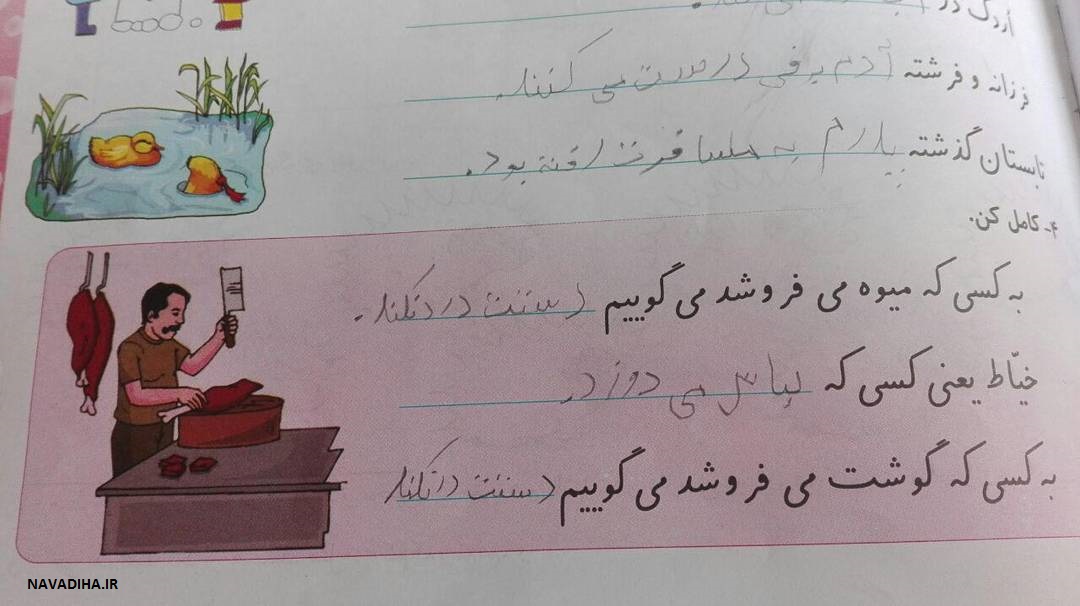 اُردک در
فرزانه و فرشته آدم برفی می کنند.
تابستان گذشته به مسافرت رفته بود.
۴- کامل کن.
به کسی که میوه می فروشد می گوییم دستت درد نکند.
خیّاط یعنی کسی که لباس می دوزد.
به کسی که گوشت می فروشد می گوییم دستت درد نکند
NAVADIHA.IR